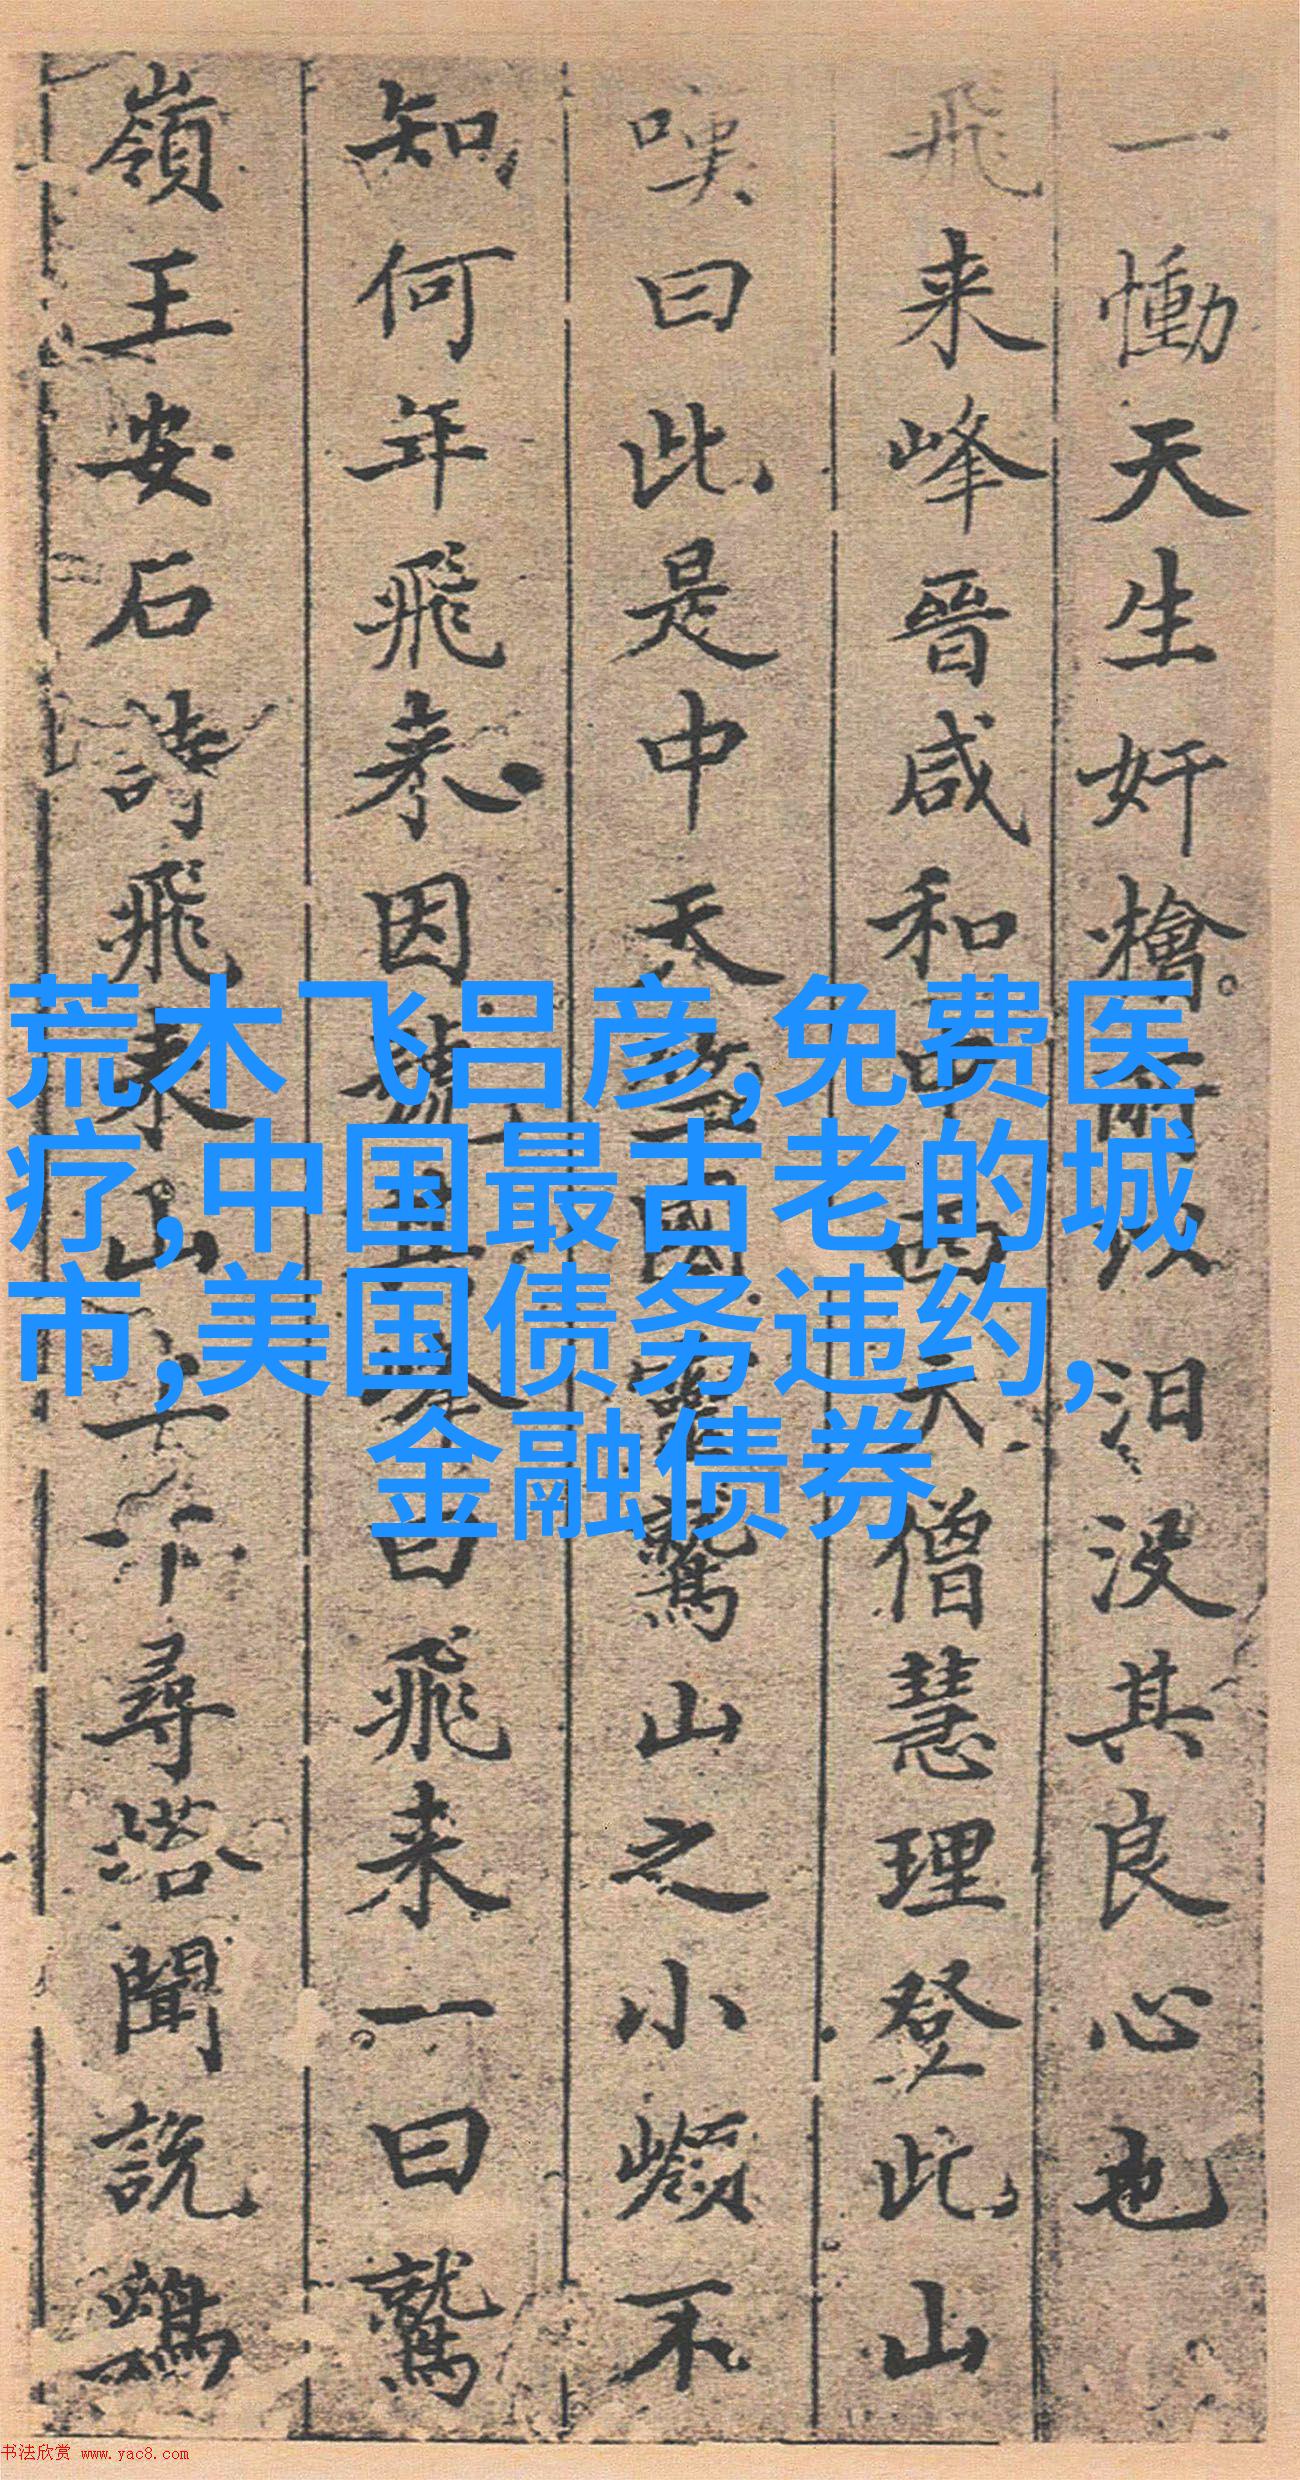 一慟天生奸檜以汩没其良心也
飛来峰晉咸和中西天僧慧理登此山
嘆曰此是中天竺國靈鷲山之小嶺不
知何年飛来因號其峯曰飛来一曰鷲
嶺王安石詩飛来山上千尋塔聞説鷄
荒木飞吕彦,免费医
疗,中国最古老的城
市,美国债务违约,
金融债券
书法欣赏 www.yac8.com